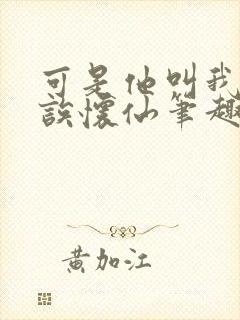 可是他叫我
誤懷仙筆趣
黄加江